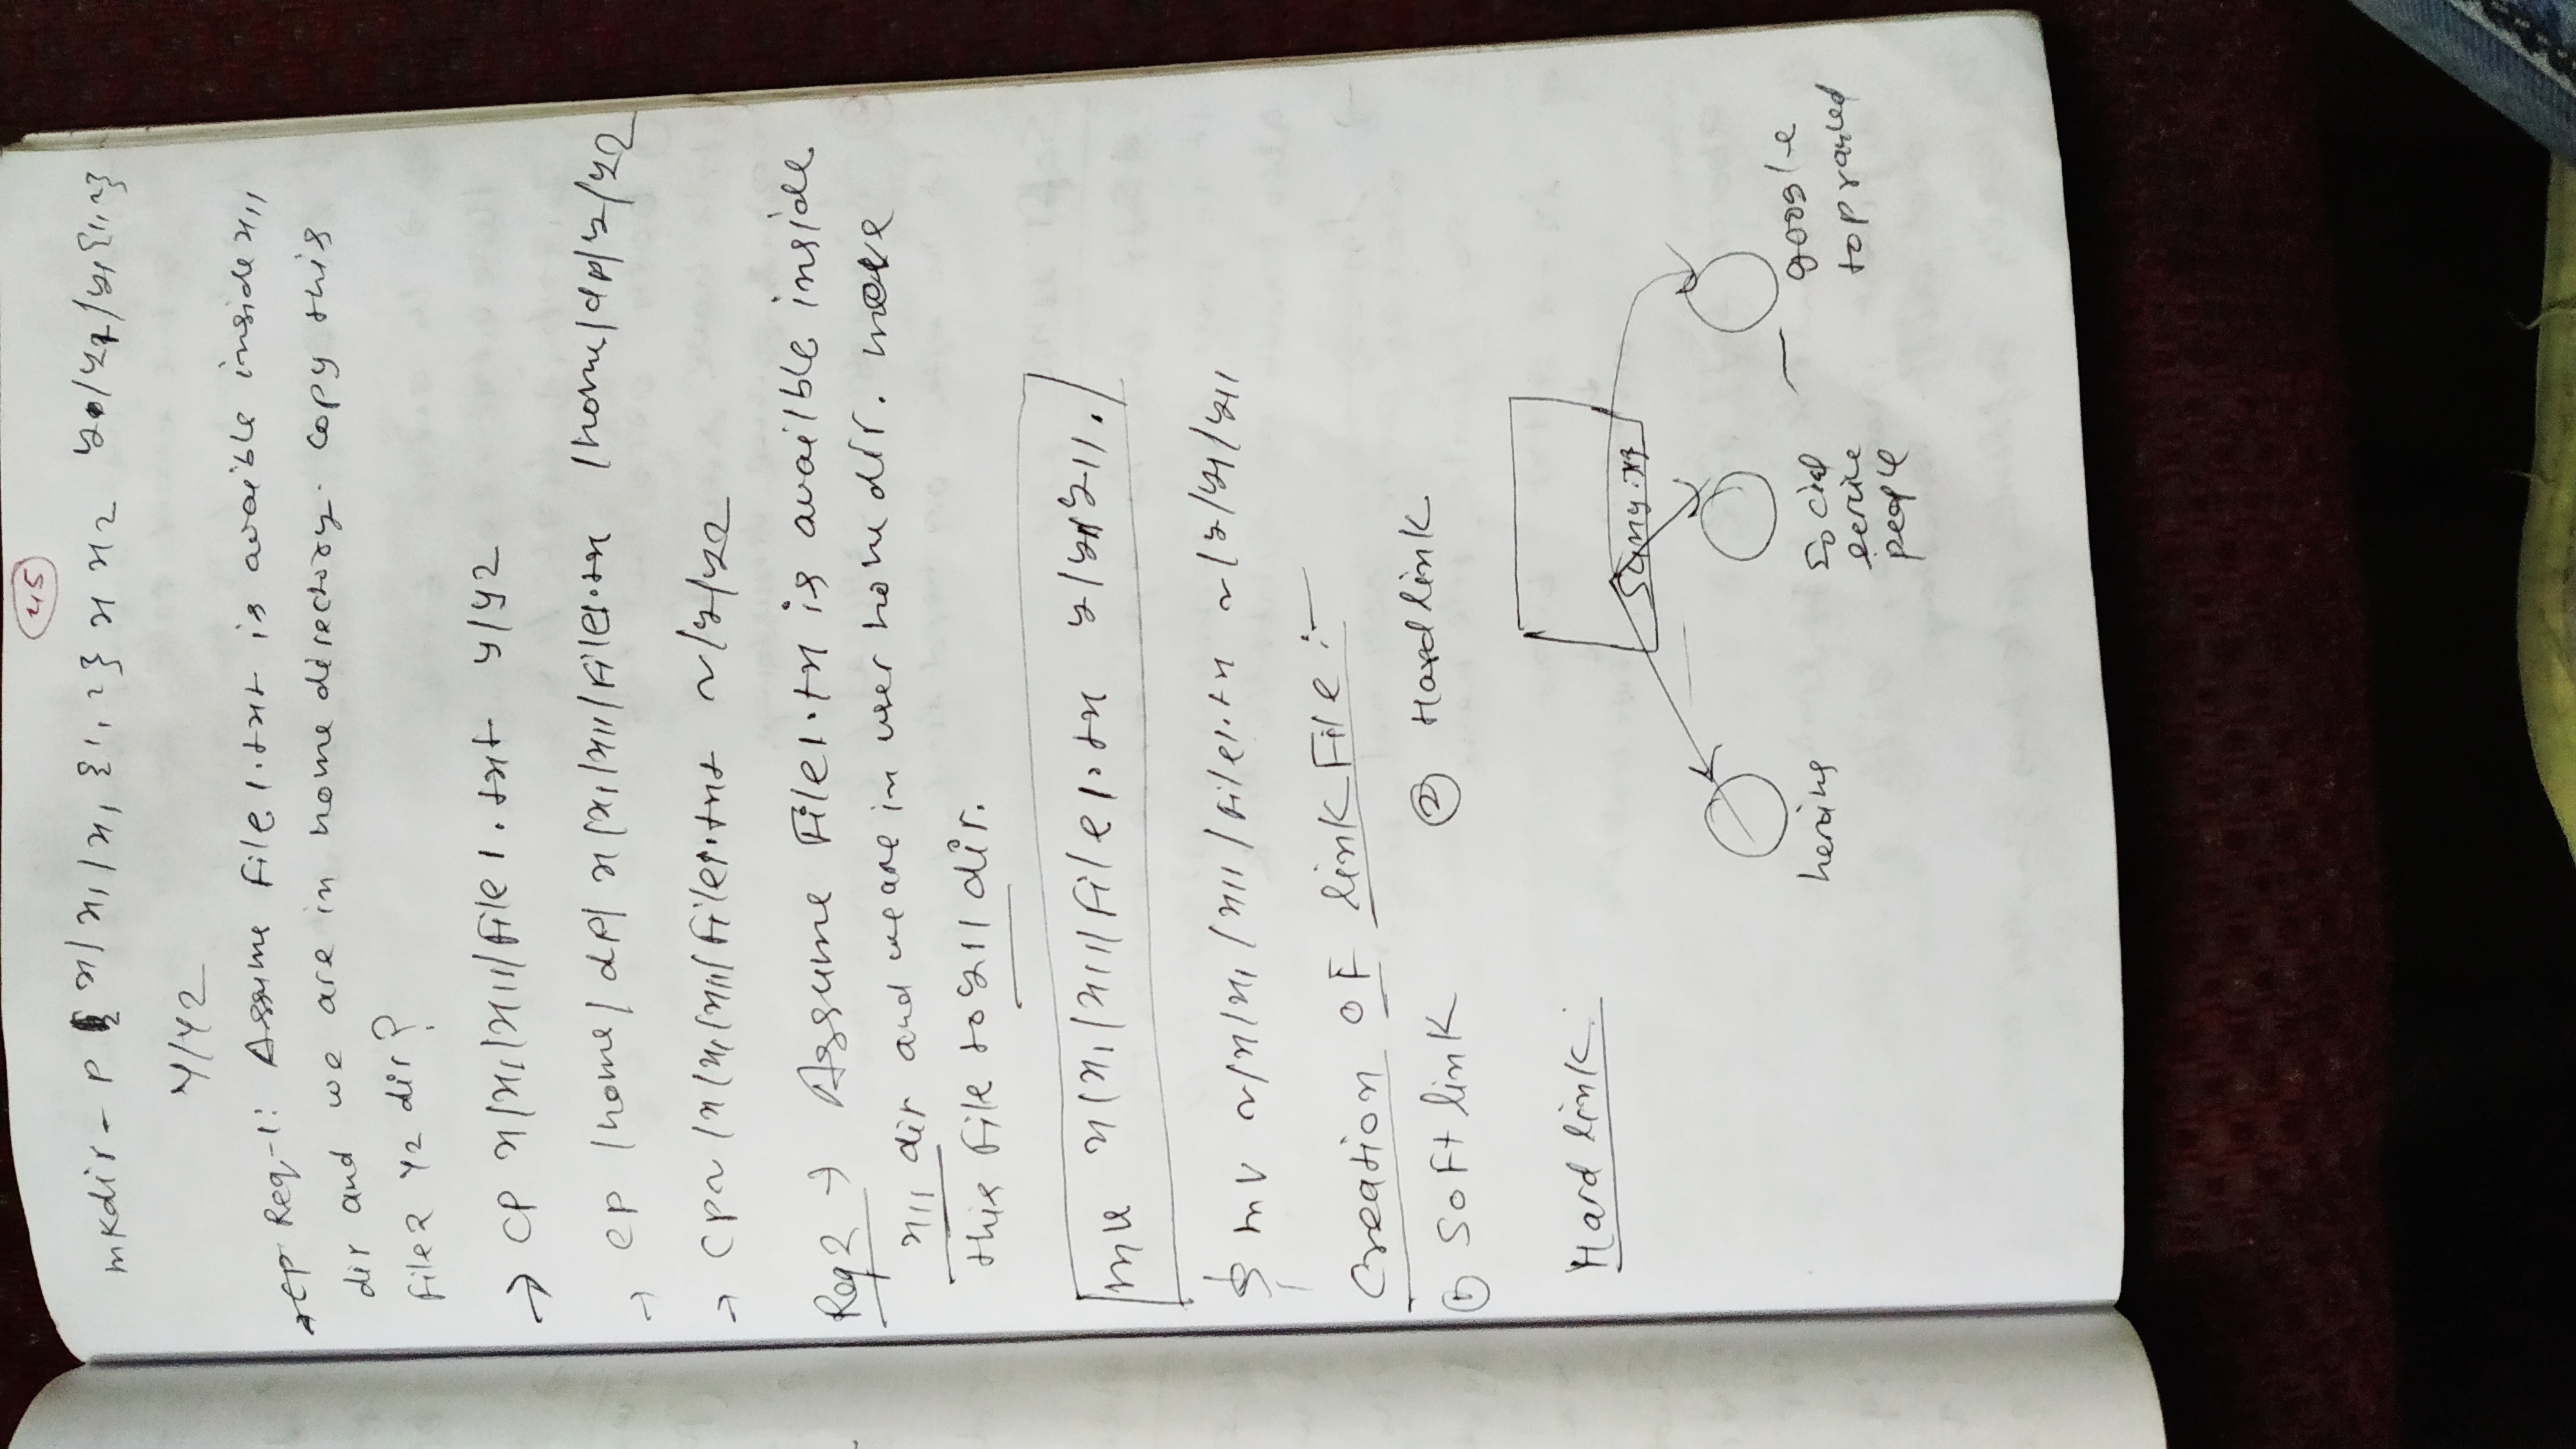 45
mkdir - p x/x1/x1{1,2} x x2 y/y1/y1{1,2}
Y/Y2
Req-1: Assume File1.txt is avaible inside x11
dir and we are in home directory. Copy this
file2 Y2 dir?
→ CP x/x1/x11/File1.txt y/y2
→ cp /home/dp/x/x1/x11/File1.tx /home/dp/y/y2
→ CP ~/x/x1/x11/File1.txt ~/y/y2
Req2 → Assume File1.tx is availble inside
x11 dir and we are in user home dir. move
this file to y11 dir.
mv x/x1/x11/File1.tx y/y1/y11.
$ mv ~/x/x1/x11/File1.tx ~/y/y1/y11
Creation OF link File :-
① Soft link ② Hard link
Hard link:
heroine social google
service top ranked
people